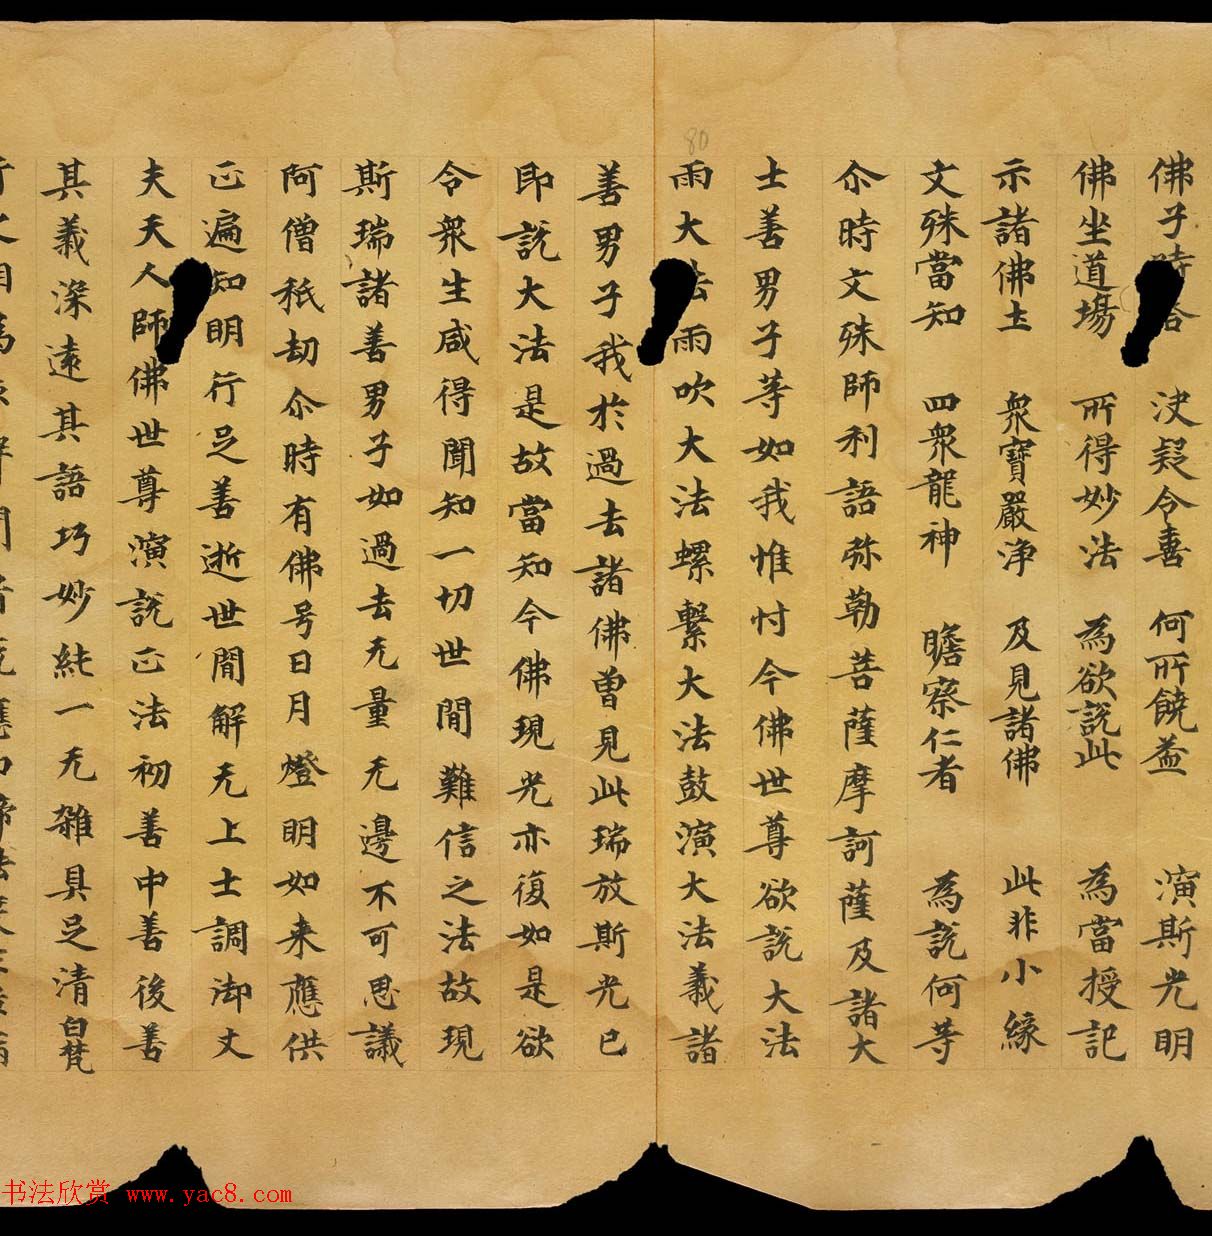 佛子時答 決疑令喜 何所饒益 演斯光明
佛坐道場 所得妙法 為欲說此 為當授記
示諸佛土 衆寶嚴淨 及見諸佛 此非小緣
文殊當知 四衆龍神 瞻察仁者 為說何等
尒時文殊師利語弥勒菩薩摩訶薩及諸大
士善男子等如我惟忖今佛世尊欲說大法
雨大法雨吹大法螺擊大法鼓演大法義諸
善男子我於過去諸佛曾見此瑞放斯光已
即說大法是故當知今佛現光亦復如是欲
令衆生咸得聞知一切世間難信之法故現
斯瑞諸善男子如過去无量无邊不可思議
阿僧祇劫尒時有佛号日月燈明如来應供
正遍知明行足善逝世間解无上士調御丈
夫天人師佛世尊演說正法初善中善後善
其義深遠其語巧妙純一无雜具足清白梵
80
书法欣赏 www.yac8.com